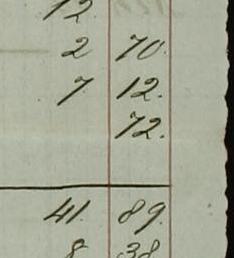 12
2 70.
7 12.
72.
41. 89.
8 38